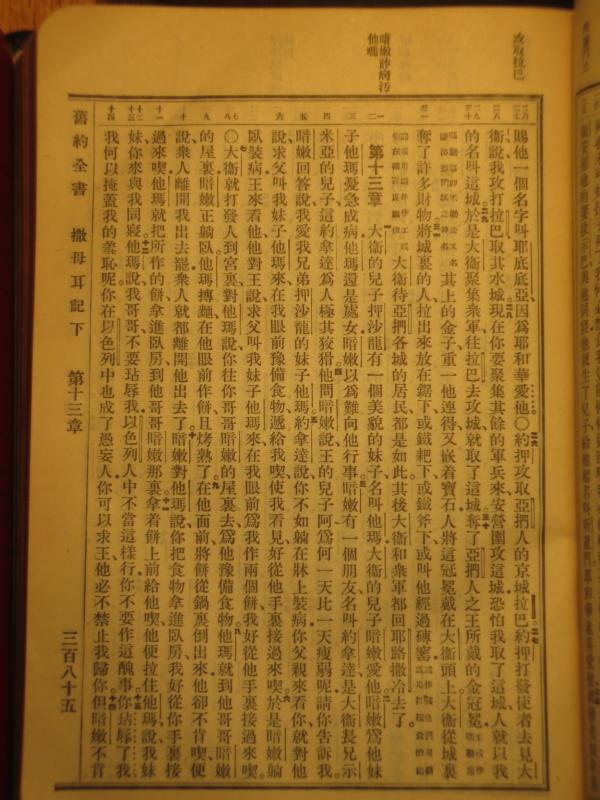 攻取拉巴
暗嫩詐病污
他嗎
賜他一個名字叫耶底底亞因爲耶和華愛他〇約押攻取亞捫人的京城拉巴約押打發使者去見大
衞說我攻打拉巴取其水城現在你要聚集其餘的軍兵來安營圍攻這城恐怕我取了這城人就以我
的名叫這城於是大衞聚集衆軍往拉巴去攻城就取了這城奪了亞捫人之王所戴的金冠冕
其上的金子重一他連得又嵌着寶石人將這冠冕戴在大衞頭上大衞從城裏
奪了許多財物將城裏的人拉出來放在鋸下或鐵耙下或鐵斧下或叫他經過磚窰
大衞待亞捫各城的居民都是如此其後大衞和衆軍都回耶路撒冷去了
第十三章 大衞的兒子押沙龍有一個美貌的妹子名叫他瑪大衞的兒子暗嫩愛他暗嫩爲他妹
子他瑪憂急成病他瑪還是處女暗嫩以爲難向他行事暗嫩有一個朋友名叫約拿達是大衞長兄示
米亞的兒子這約拿達爲人極其狡猾他問暗嫩說王的兒子阿爲何一天比一天瘦弱呢請你告訴我
暗嫩回答說我愛我兄弟押沙龍的妹子他瑪約拿達說你不如躺在牀上裝病你父親來看你就對他
說求父叫我妹子他瑪來在我眼前豫備食物遞給我喫使我看見好從他手裏接過來喫於是暗嫩躺
臥裝病王來看他他對王說求父叫我妹子他瑪來在我眼前爲我作兩個餅我好從他手裏接過來喫
〇大衞就打發人到宮裏對他瑪說你往你哥哥暗嫩的屋裏去爲他豫備食物他瑪就到他哥哥暗嫩
的屋裏暗嫩正躺臥他瑪摶麵在他眼前作餅且烤熟了在他面前將餅從鍋裏倒出來他卻不肯喫便
說衆人離開我出去罷衆人就都離開他出去了暗嫩對他瑪說你把食物拿進臥房我好從你手裏接
過來喫他瑪就把所作的餅拿進臥房到他哥哥暗嫩那裏拿着餅上前給他喫他便拉住他瑪說我妹
妹你來與我同寢他瑪說我哥哥不要玷辱我以色列人中不當這樣行你不要作這醜事你玷辱了我
我何以掩蓋我的羞恥呢你在以色列中也成了愚妄人你可以求王他必不禁止我歸你但暗嫩不肯
舊約全書 撒母耳記下 第十三章 三百八十五